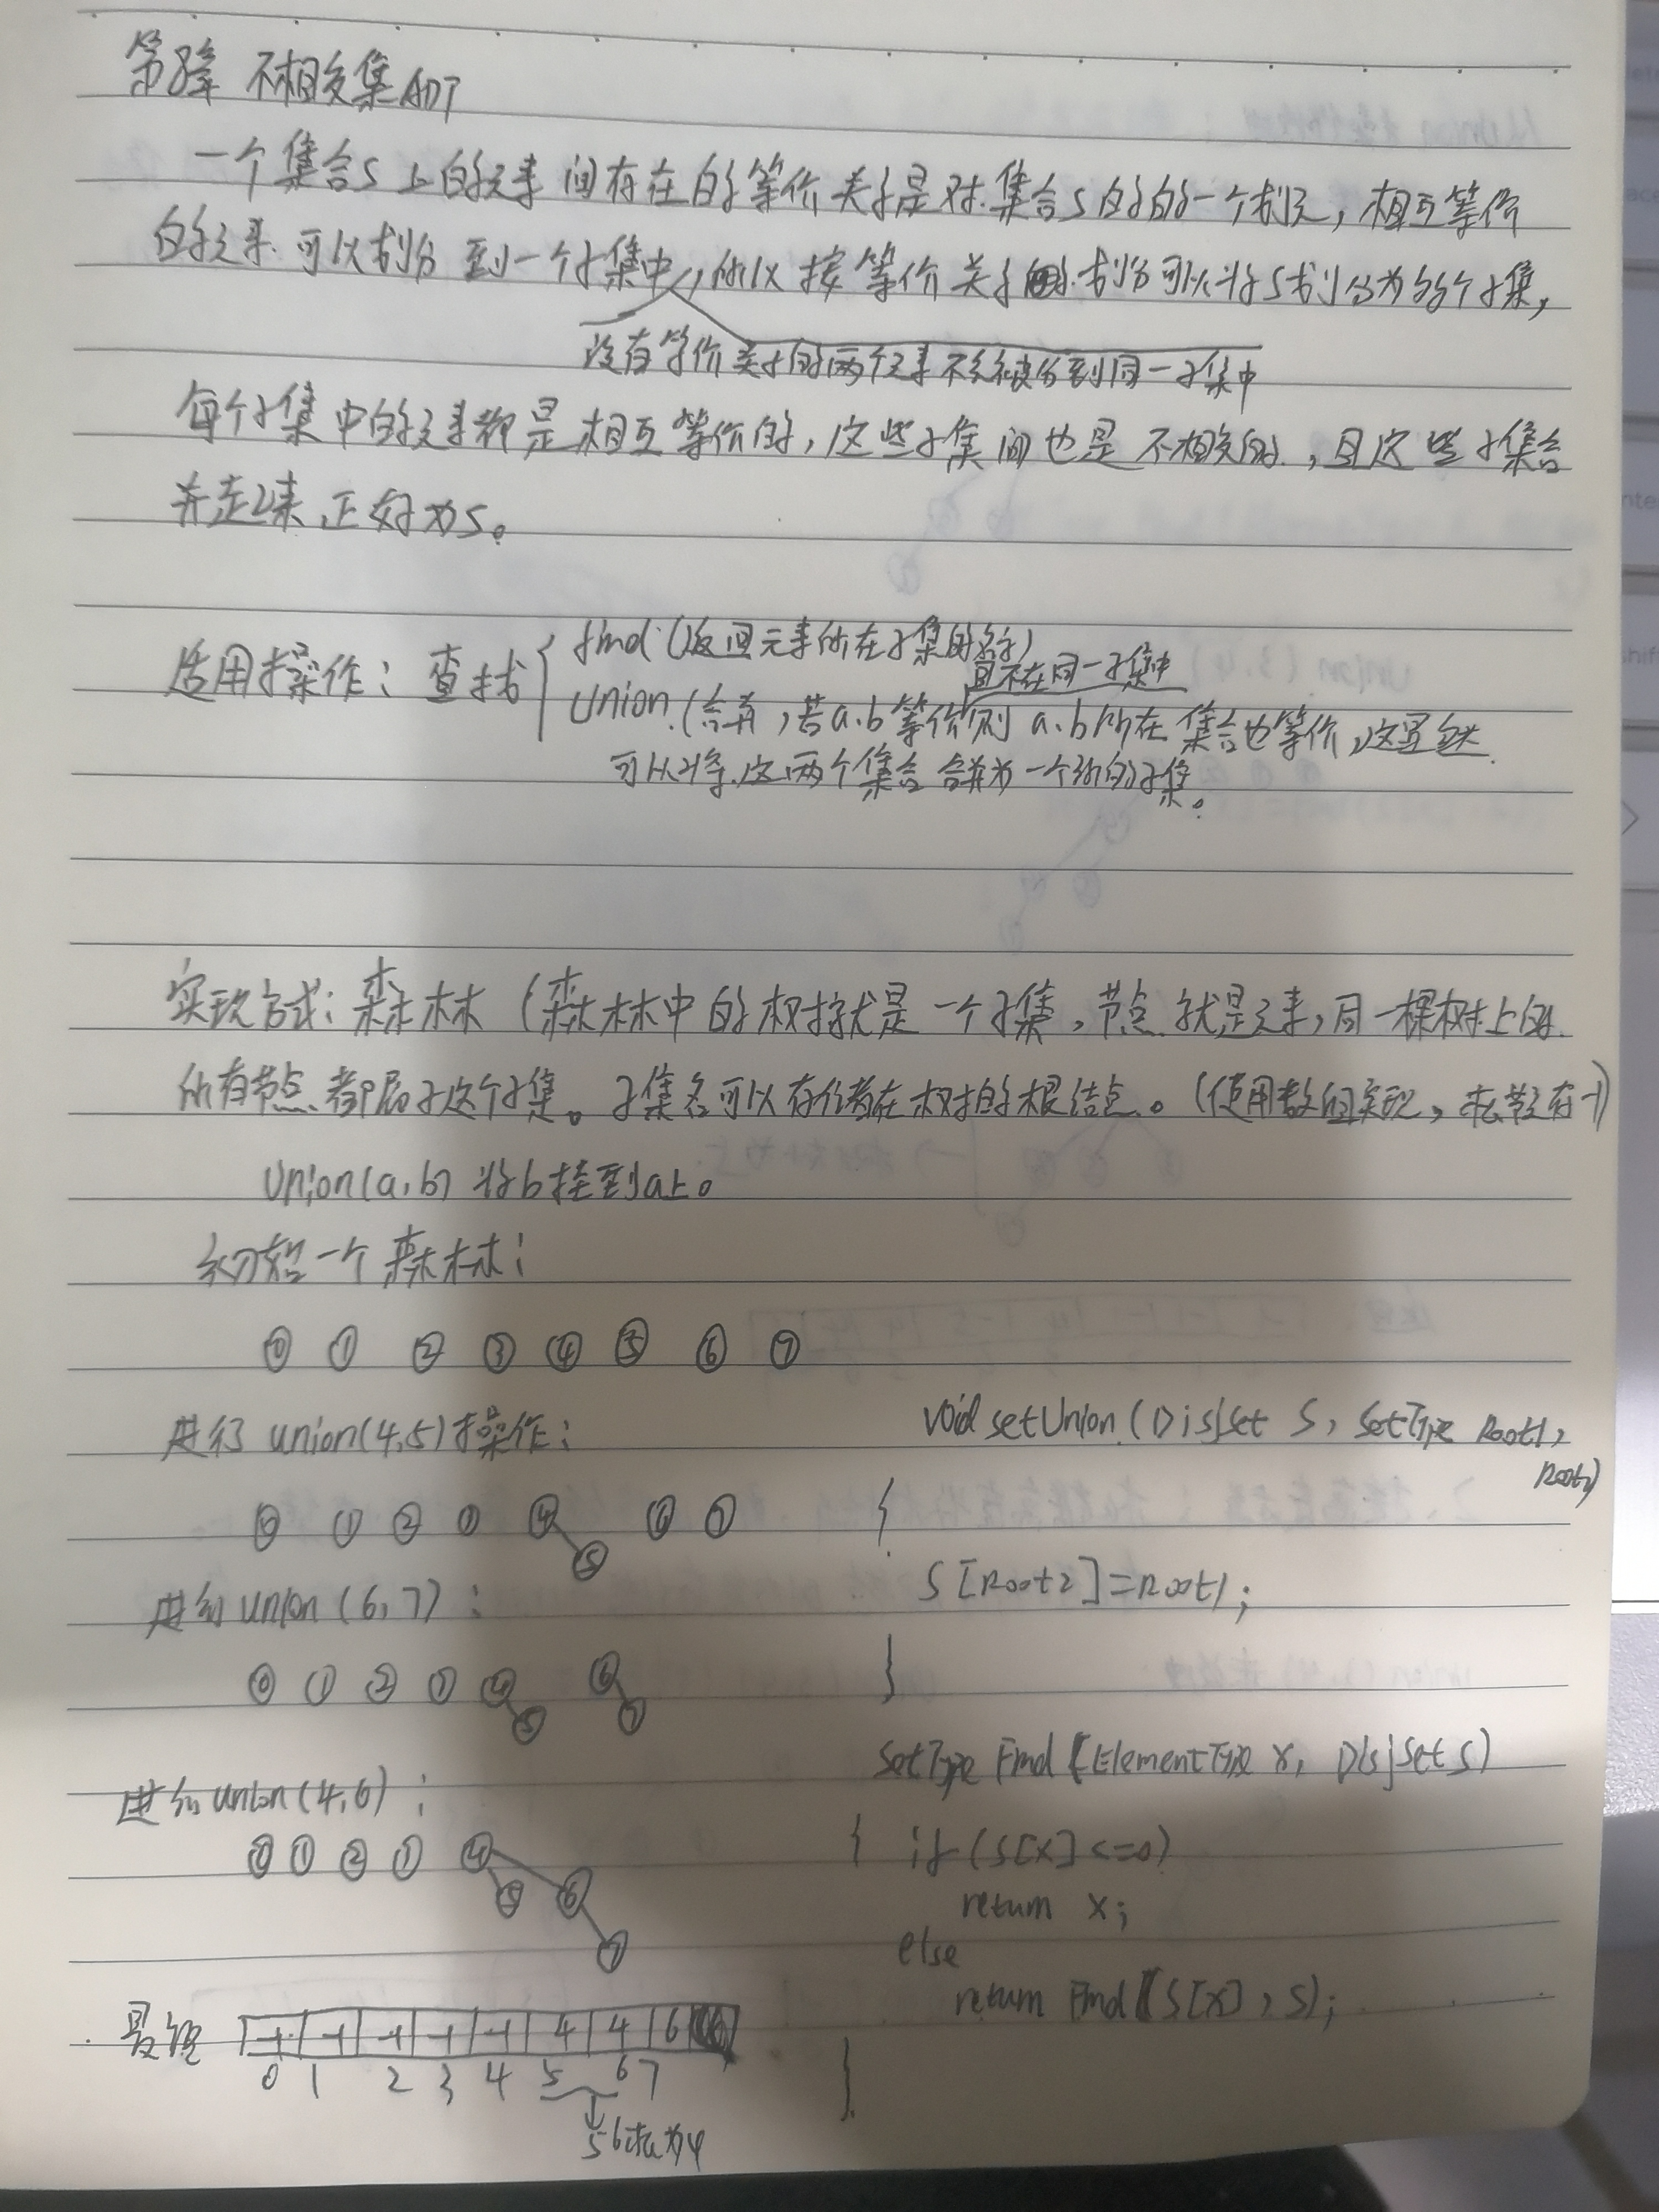 第8章 不相交集ADT
一个集合S上的元素间存在的等价关系是对集合S的的一个划分，相互等价
的元素可以划分到一个子集中，所以按等价关系的划分可以将S划分为多个子集，
没有等价关系的两个元素不会被分到同一子集中
每个子集中的元素都是相互等价的，这些子集间也是不相交的，且这些子集合
并起来正好为S。
适用操作：查找
find（返回元素所在子集的名字）
且不在同一子集中
Union（合并，若a.b等价则a.b所在集合也等价，这显然
可以将这两个集合合并为一个新的子集。
实现方式：森林（森林中的树就是一个子集，节点就是元素，同一棵树上的
所有节点都属于这个子集。子集名可以存储在树的根结点。（使用数组实现，根节点存-1）
Union(a,b) 将b挂到a上。
初始一个森林：
0 1 2 3 4 5 6 7
进行union(4,5)操作：
0 1 2 3 4 6 7
5
进行union(6,7)：
0 1 2 3 4 6
5 7
进行union(4,6)：
0 1 2 3 4
5 6
7
最终 -1 -1 -1 -1 -1 4 4 6
0 1 2 3 4 5 6 7
5 6根为4
void setUnion(DisjSet S, SetType Root1,
Root2)
{
S[Root2]=Root1;
}
SetType Find(ElementType X, DisjSet S)
{ if(S[X]<=0)
return X;
else
return Find(S[X], S);
}